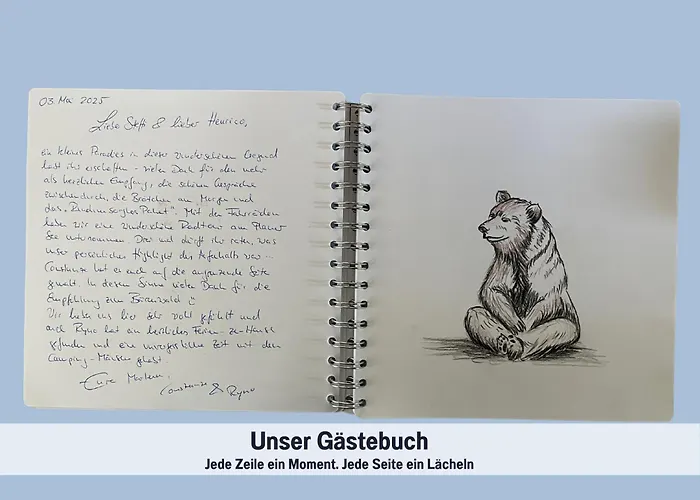 03. Mai 2025
Liebe Steffi & lieber Henrico,
ein kleines Paradies in dieser wunderschönen Gegend
habt ihr erschaffen - vielen Dank für den mehr
als herzlichen Empfang, die schönen Gespräche
zwischendurch, die Brötchen am Morgen und
das „Rundumsorglos Paket". Mit den Fahrrädern
haben wir eine wunderschöne Radtour am Plauer
See unternommen. Dort und dürft ihr raten, was
unser persönliches Highlight des Aufenthalts war...
Constanze hat es euch auf die angrenzende Seite
gemalt. In diesem Sinne vielen Dank für die
Empfehlung zum Bärenwald
Wir haben uns hier sehr wohl gefühlt und
auch Ryno hat ein herrliches Ferien-zu-Hause
gefunden und eine unvergessliche Zeit mit dem
Camping-Mäuschen gehabt.
Eure
Constanze & Ryno
Unser Gästebuch
Jede Zeile ein Moment. Jede Seite ein Lächeln